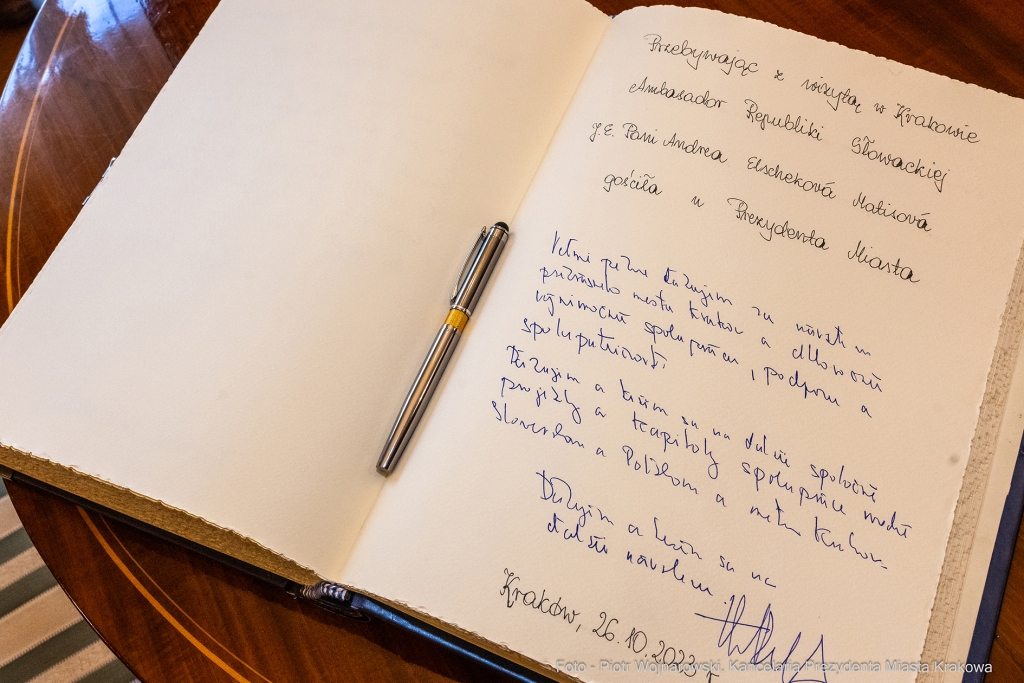 Przebywając z wizytą w Krakowie
Ambasador Republiki Słowackiej
J.E. Pani Andrea Elscheková Matisová
gościła u Prezydenta Miasta
Veľmi pekne ďakujem za návštevu
mesta Krakov a dlhoročnú
výnimočnú spoluprácu, podporu a
spolupatričnosť.
Ďakujem a teším sa na ďalšie spoločné
projekty a kapitoly spolupráce medzi
Slovenskom a Poľskom a mestom Krakov.
Ďakujem a teším sa na
ďalšiu návštevu.
Kraków, 26.10.2023 r.
Foto - Piotr Wojnarowski. Kancelaria Prezydenta Miasta Krakowa